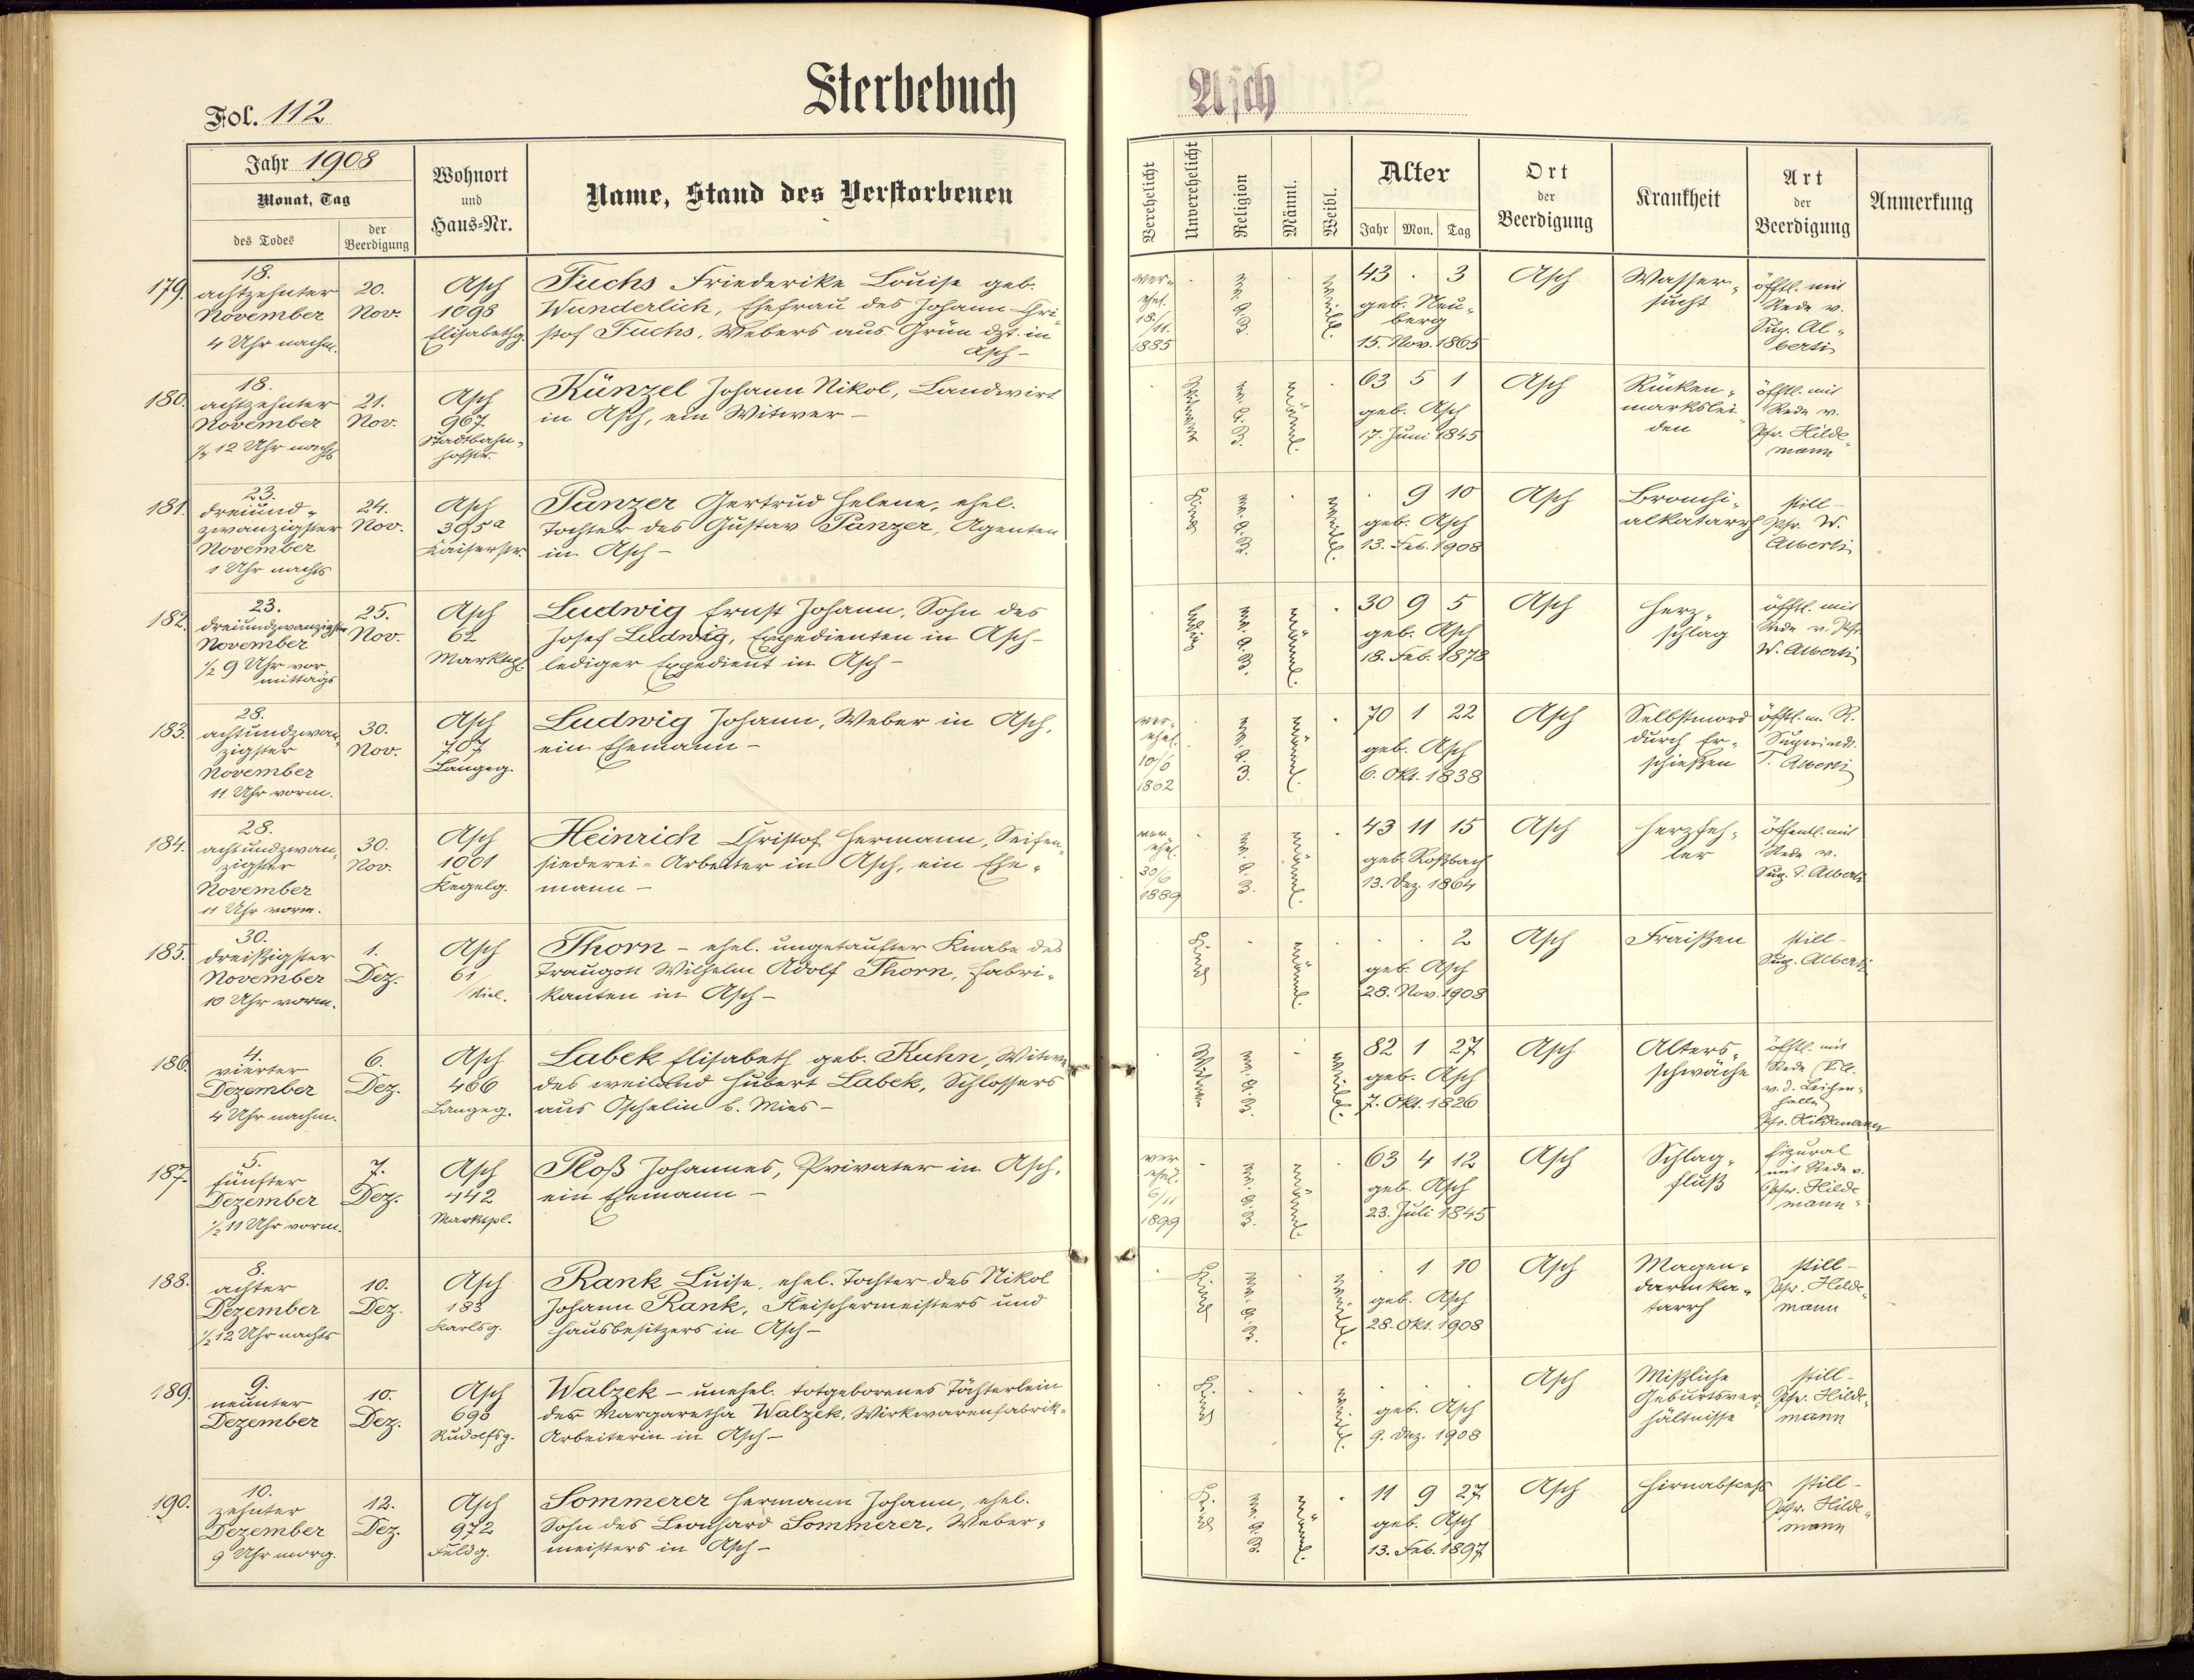 Sterbebuch
Asch
Fol. 112
Jahr 1908
Monat, Tag
des Todes
der
Beerdigung
Wohnort
und
Haus-Nr.
Name, Stand des Verstorbenen
Verehelicht
Unverehelicht
Religion
Männl.
Weibl.
Alter
Jahr
Mon.
Tag
Ort
der
Beerdigung
Krankheit
Art
der
Beerdigung
Anmerkung
179.
18.
achtzehnter
November
4 Uhr nachm.
20.
Nov.
Asch
1098
Elisabethg.
Fuchs Friederike Louise geb.
Wunderlich, Ehefrau des Johann Chri-
stof Fuchs, Webers aus Grün dzt. in
Asch –
ver-
ehel.
18./
11.
1885
ev. A. B.
weibl.
43 . 3
geb. Neu-
berg
15. Nov. 1865
Asch
Wasser-
sucht
öfftl. mit
Rede v.
Sup. Al-
berti
180.
18.
achtzehnter
November
12 Uhr nachts
21.
Nov.
Asch
967
Stadtbahn-
hofstr.
Künzel Johann Nikol, Landwirt
in Asch, ein Witwer –
Witwer
ev. A. B.
männl.
63 5 1
geb. Asch
17. Juni 1845
Asch
Rücken-
markslei-
den
öfftl. mit
Rede v.
Pfr. Hilde-
mann
181.
23.
dreiund-
zwanzigster
November
1 Uhr nachts
24.
Nov.
Asch
395a
Kaiserstr.
Panzer Gertrud Helene, ehel.
Tochter des Gustav Panzer, Agenten
in Asch –
Kind
ev. A. B.
weibl.
. 9 10
geb. Asch
13. Feb. 1908
Asch
Bronchi-
alkatarrh
still –
Pfr. W.
Alberti
182.
23.
dreiundzwanzigster
November
1/2 9 Uhr vor-
mittags
25.
Nov.
Asch
62
Marktpl.
Ludwig Ernst Johann, Sohn des
Josef Ludwig, Expedienten in Asch –
lediger Expedient in Asch –
ledig
ev. A. B.
männl.
30 9 5
geb. Asch
18. Feb. 1878
Asch
Herz-
schlag
öfftl. mit
Rede v. Pfr.
W. Alberti
183.
28.
achtundzwan-
zigster
November
11 Uhr vorm.
30.
Nov.
Asch
707
Langeg.
Ludwig Johann, Weber in Asch,
ein Ehemann –
ver-
ehel.
10/6
1862
ev. A. B.
männl.
70 1 22
geb. Asch
6. Okt. 1838
Asch
Selbstmord
durch Er-
schießen
öfftl. m. R.
T. Alberti
184.
28.
achtundzwan-
zigster
November
11 Uhr vorm.
30.
Nov.
Asch
1001
Kegelg.
Heinrich Christof Hermann, Seifen-
siederei-Arbeiter in Asch, ein Ehe-
mann –
ver-
ehel.
30/6
1889
ev. A. B.
männl.
43 11 15
geb. Roßbach
13. Dez. 1864
Asch
Herzfeh-
ler
öffentl. mit
Rede v.
Sup. T. Alberti
185.
30.
dreißigster
November
10 Uhr vorm.
1.
Dez.
Asch
61
Thorn – ehel. ungetaufter Knabe des
Traugott Wilhelm Adolf Thorn, Fabri-
kanten in Asch –
Kind
männl.
. . 2
geb. Asch
28. Nov. 1908
Asch
Fraißen
still –
Sup. Alberti
186.
4.
vierter
Dezember
4 Uhr nachm.
6.
Dez.
Asch
466
Langeg.
Labek Elisabeth geb. Kuhn, Witwe
des weiland Hubert Labek, Schlossers
aus Oschelin b. Mies –
Witwe
ev. A. B.
weibl.
82 1 27
geb. Asch
7. Okt. 1826
Asch
Alters-
schwäche
öfftl. mit
Rede
v. d. Leichen-
halle
Pfr. Hildemann
187.
5.
fünfter
Dezember
1/2 11 Uhr vorm.
7.
Dez.
Asch
442
Marktpl.
Ploß Johannes, Privater in Asch,
ein Ehemann –
ver-
ehel.
6/11
1899
ev. A. B.
männl.
63 4 12
geb. Asch
23. Juli 1845
Asch
Schlag-
fluß
figural
mit Rede v.
Pfr. Hilde-
mann
188.
8.
achter
Dezember
1/2 12 Uhr nachts
10.
Dez.
Asch
183
Karlsg.
Rank Luise, ehel. Tochter des Nikol
Johann Rank, Fleischermeisters und
Hausbesitzers in Asch –
Kind
ev. A. B.
weibl.
. 1 10
geb. Asch
28. Okt. 1908
Asch
Magen-
darmka-
tarrh
still –
Pfr. Hilde-
mann
189.
9.
neunter
Dezember
10.
Dez.
Asch
698
Rudolfsg.
Walzek – unehel. totgeborenes Töchterlein
der Margaretha Walzek, Wirkwarenfabrik-
Arbeiterin in Asch –
Kind
weibl.
. . .
geb. Asch
9. Dez. 1908
Asch
Mißliche
Geburtsver-
hältnisse
still –
Pfr. Hilde-
mann
190.
10.
zehnter
Dezember
9 Uhr morg.
12.
Dez.
Asch
972
Feldg.
Sommerer Hermann Johann, ehel.
Sohn des Leonhard Sommerer, Weber-
meisters in Asch –
Kind
ev. A. B.
männl.
11 9 27
geb. Asch
13. Feb. 1897
Asch
Hirnabsceß
still –
Pfr. Hilde-
mann